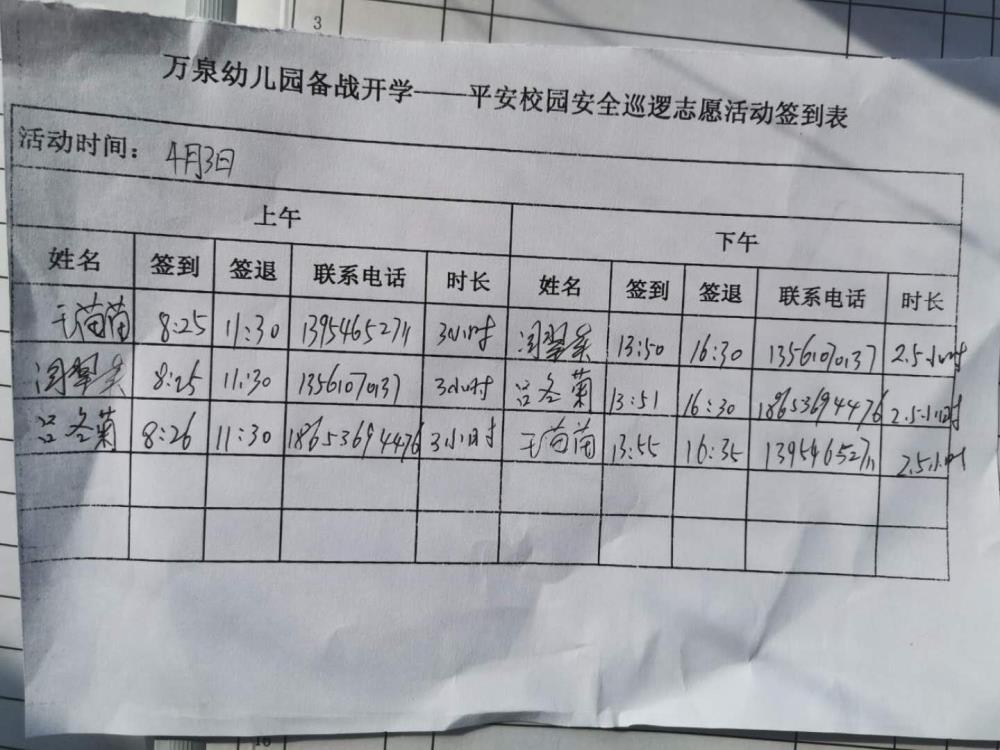 3
万泉幼儿园备战开学——平安校园安全巡逻志愿活动签到表
活动时间： 4月3日
上午 下午
姓名 签到 签退 联系电话 时长 姓名 签到 签退 联系电话 时长
王苗苗 8:25 11:30 13954652711 3小时 闫翠美 13:50 16:30 13561070137 2.5小时
闫翠美 8:25 11:30 13561070137 3小时 吕冬菊 13:51 16:30 18653694476 2.5小时
吕冬菊 8:26 11:30 18653694476 3小时 王苗苗 13:55 16:35 13954652711 2.5小时
16